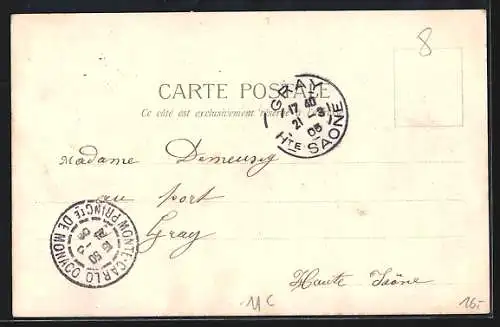 8
CARTE POSTALE
Ce côté est exclusivement réservé à l'adresse
GRAY
17 40
21 3
05
HTE SAONE
Madame Demeusy
au port
Gray
Haute Saône
MONTE-CARLO
PRINCTE DE MONACO
11 C
16.-